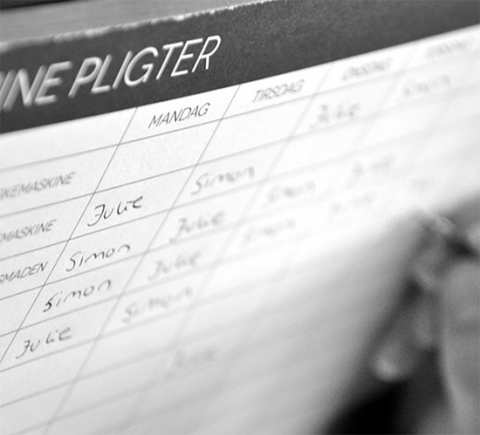 INE PLIGTER
MANDAG TIRSDAG ONSDAG
KEMASKINE Julie Simon
MASKINE Julie Simon
RMADEN Simon Julie Simon
Simon Julie Simon
Julie Simon
Julie